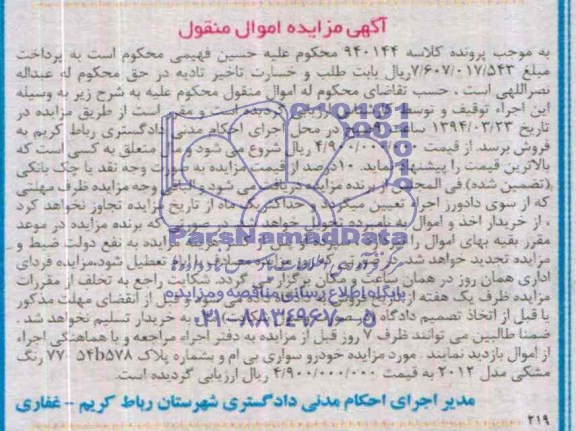 آگهی مزایده اموال منقول
به موجب پرونده کلاسه ۹۴۰۱۴۴ محکوم علیه حسین فهیمی محکوم است به پرداخت
مبلغ ۷/۶۰۷/۰۱۷/۵۴۳ ریال بابت طلب و خسارت تاخیر تادیه در حق محکوم له عبداله
نصراللهی است ، حسب تقاضای محکوم له اموال منقول محکوم علیه به شرح زیر به وسیله
این اجراء توقیف و توسط ارزیابی گردیده است و مقرر است از طریق مزایده در
تاریخ ۱۳۹۴/۰۳/۲۳ ساعت در محل اجرای احکام مدنی دادگستری رباط کریم به
فروش برسد. از قیمت ۴/۹۰۰/۰۰۰/۰۰۰ ریال شروع می شود و مال متعلق به کسی است که
بالاترین قیمت را پیشنهاد نماید. ۱۰درصد از قیمت مزایده به صورت وجه نقد یا چک بانکی
(تضمین شده) فی المجلس از برنده مزایده دریافت می شود و الباقی وجه مزایده ظرف مهلتی
که از سوی دادورز اجراء تعیین میگردد و حداکثر یک ماه از تاریخ مزایده تجاوز نخواهد کرد
، از خریدار اخذ و اموال به نامبرده تحویل خواهد شد. در صورتی که برنده مزایده در موعد
مقرر بقیه بهای اموال را از مزایده به نفع دولت ضبط و
مزایده تجدید خواهد شد. در صورتی که روز مزایده مصادف با ایام تعطیل شود،مزایده فردای
اداری همان روز در همان ساعت و مکان برگزار می گردد. شکایت راجع به تخلف از مقررات
مزایده ظرف یک هفته از از انقضای مهلت مذکور
یا قبل از اتخاذ تصمیم دادگاه به خریدار تسلیم نخواهد شد .
ضمنا طالبین می توانند ظرف ۷ روز قبل از مزایده به دفتر اجراء مراجعه و با هماهنگی اجراء
از اموال بازدید نمایند . مورد مزایده خودرو سواری بی ام و بشماره پلاک ۵۷۸b۵۴ -۷۷ رنگ
مشکی مدل ۲۰۱۲ به قیمت ۴/۹۰۰/۰۰۰/۰۰۰ ریال ارزیابی گردیده است.
مدیر اجرای احکام مدنی دادگستری شهرستان رباط کریم - غفاری
۲۱۹
ParsNamadData
پایگاه اطلاع رسانی مناقصه و مزایده
۰۲۱-۸۸۳۴۹۶۷۰-۵